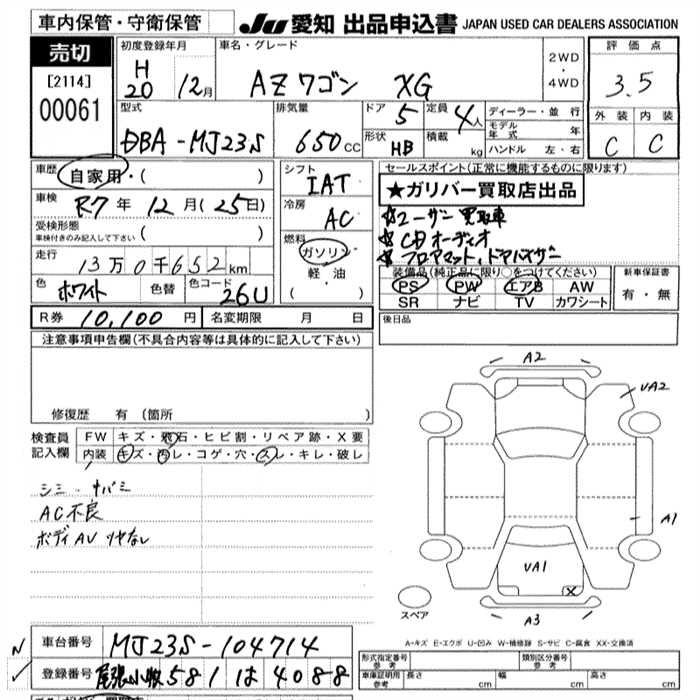 車内保管・守衛保管
JU 愛知 出品申込書 JAPAN USED CAR DEALERS ASSOCIATION
売切
[2114]
00061
初度登録年月
H
20 12月
車名・グレード
AZワゴン XG
2WD
・
4WD
評価点
3.5
外装 内装
C C
型式
DBA-MJ23S
排気量
650cc
ドア
5
定員
4人
形状
HB
積載
kg
ディーラー・並 行
モデル年式 年
ハンドル 左・右
車歴
自家用・( )
車検
R7年 12月(25日)
受検形態
車検付きのみ記入して下さい ( )
走行
13万0千652km
色
ホワイト
色替
色コード
26U
シフト
IAT
冷房
AC
燃料
ガソリン
軽・油
( ・ )
セールスポイント(正常に機能するものに限ります)
★ガリバー買取店出品
☆ユーザー買取車
☆CDオーディオ
☆フロアマット、ドアバイザー
装備品(純正品に限り○をつけてください)
PS PW エアB AW
SR ナビ TV カワシート
新車保証書
有・無
R券 10,100円 名変期限 月 日
後日品
注意事項申告欄(不具合内容等は具体的に記入して下さい)
修復歴 有(箇所 )
検査員
記入欄
FW キズ・飛石・ヒビ割・リペア跡・X要
内装 キズ・汚レ・コゲ・穴・スレ・キレ・破レ
シミ ナバミ
AC不良
ボディAU
A2
UA2
A1
UA1
X
A3
スペア
A-キズ E-エクボ U-凹み W-補修跡 S-サビ C-腐食 XX-交換済
車台番号 MJ23S-104714
登録番号 尾張小牧 581 は 4088
形式指定番号
参考
類別区分番号
参考
車庫証明用
参考
長さ cm
幅 cm
高さ cm